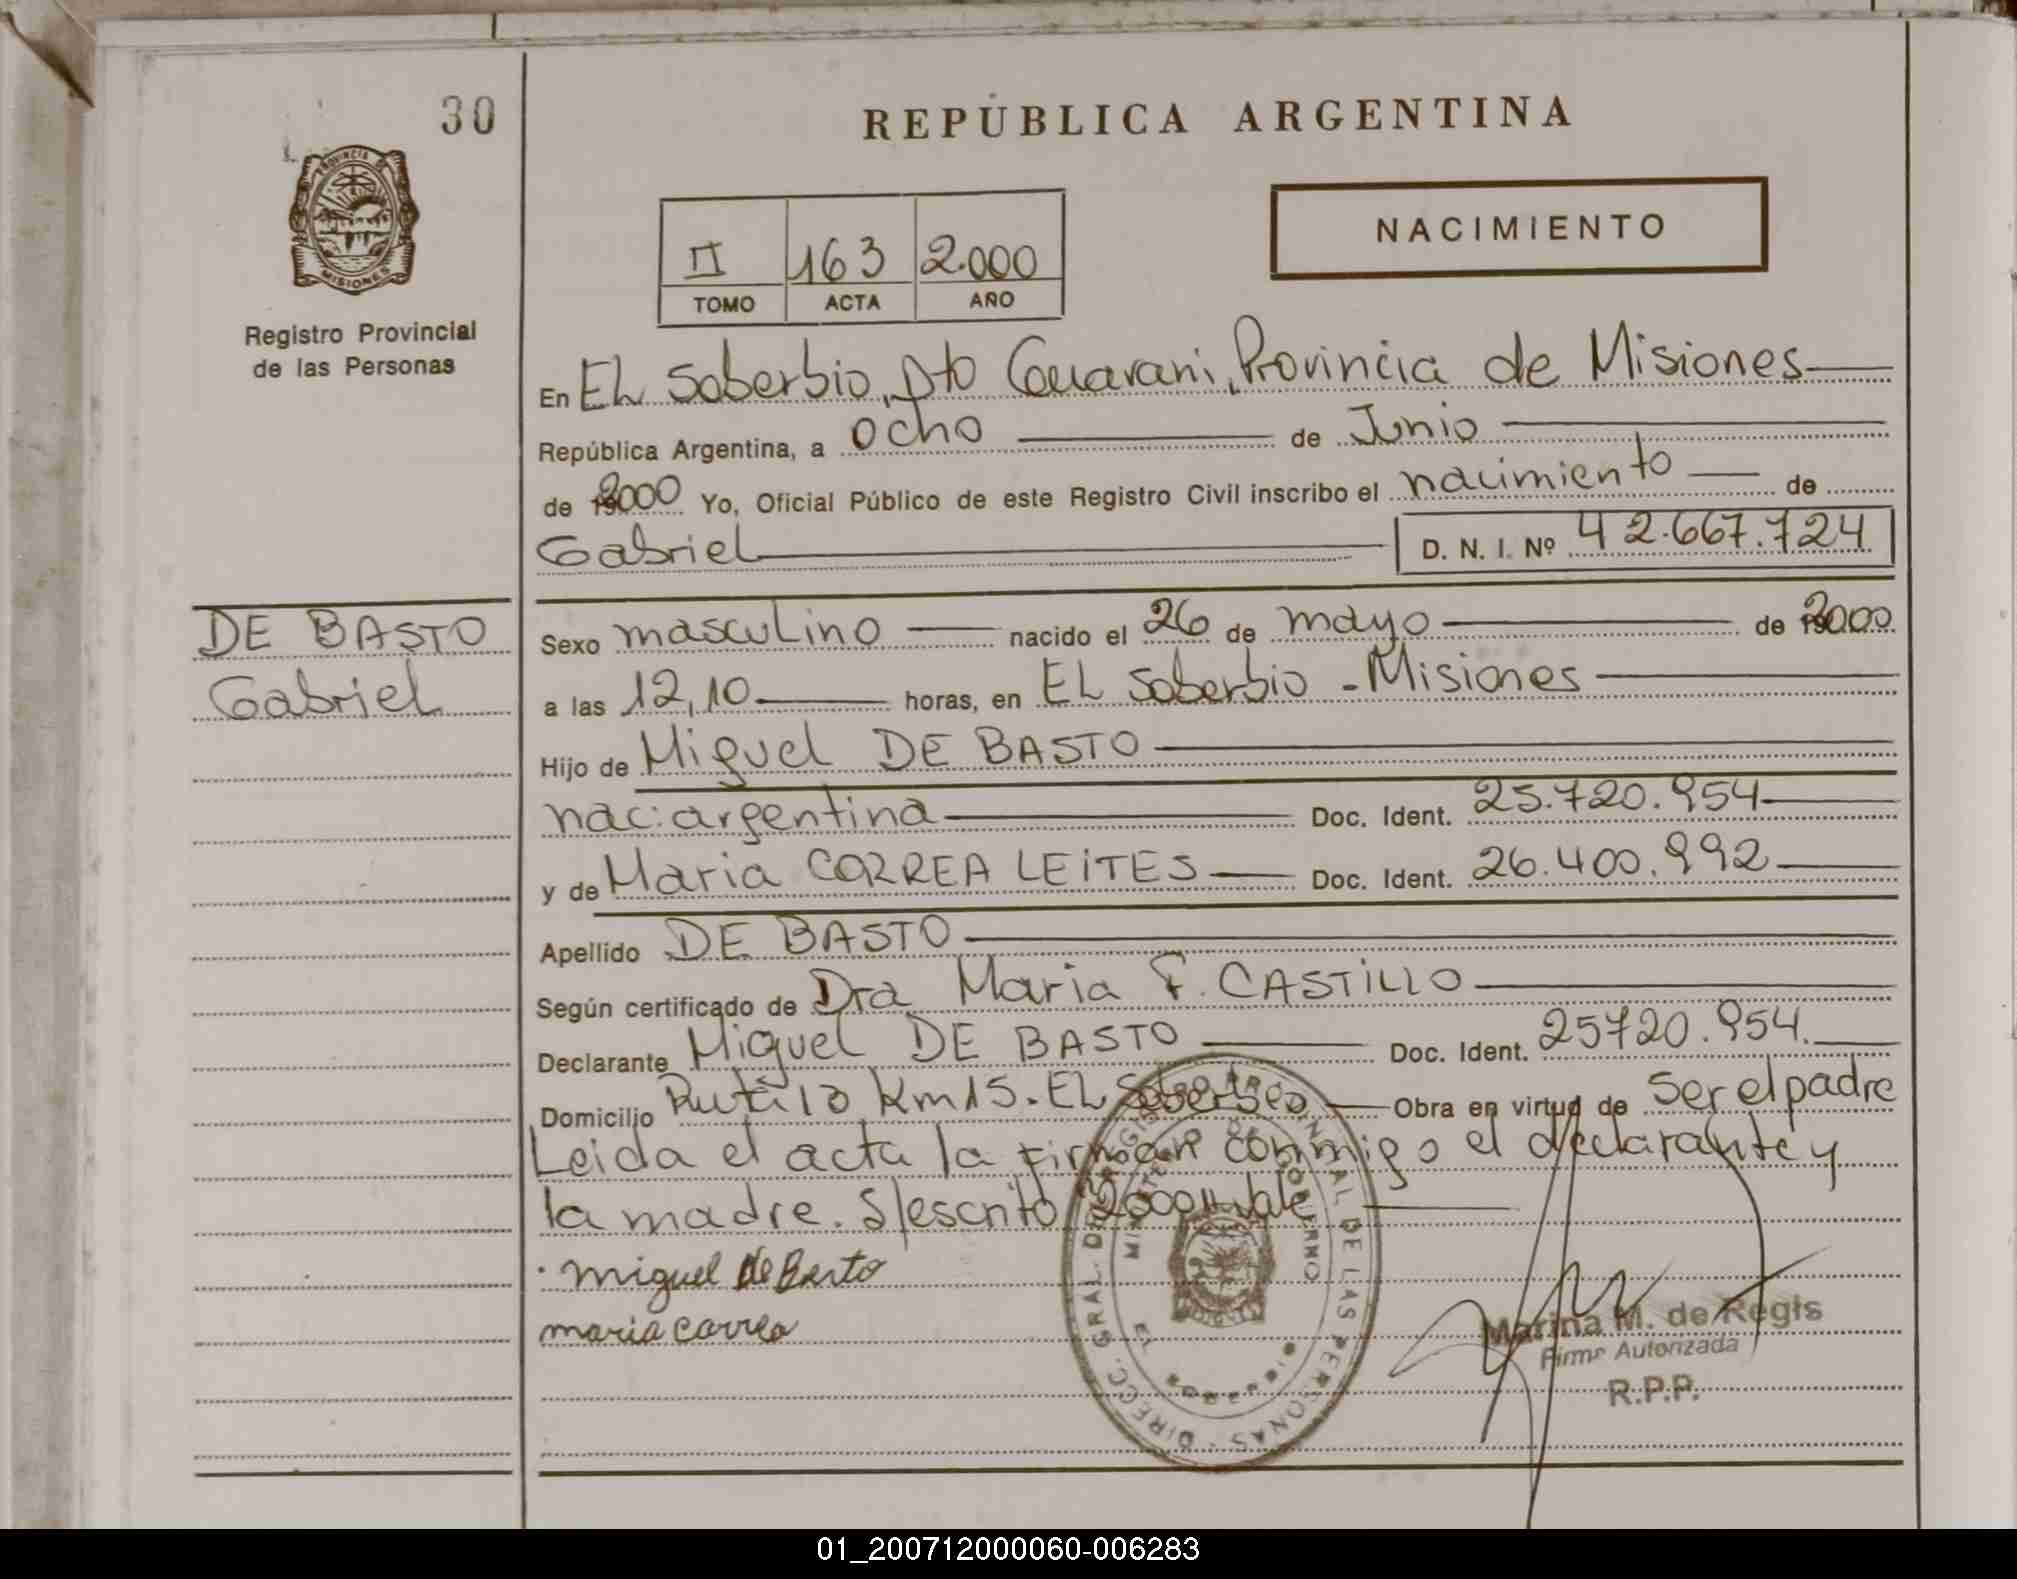 30
REPÚBLICA ARGENTINA
PROVINCIA DE
MISIONES
Registro Provincial
de las Personas
II 163 2.000
TOMO ACTA AÑO
NACIMIENTO
En EL Soberbio, Dto Guarani, Provincia de Misiones
República Argentina, a ocho de Junio
de 2000 Yo, Oficial Público de este Registro Civil inscribo el nacimiento de
Gabriel D. N. I. Nº 42.667.724
DE BASTO
Gabriel
Sexo masculino nacido el 26 de mayo de 2000
a las 12,10 horas, en EL Soberbio - Misiones
Hijo de Miguel DE BASTO
nac: argentina Doc. Ident. 25.720.954
y de Maria CORREA LEITES Doc. Ident. 26.400.992
Apellido DE BASTO
Según certificado de Dra Maria F. CASTILLO
Declarante Miguel DE BASTO Doc. Ident. 25720.954.
Domicilio Ruta 13 Km 15. EL Soberbio Obra en virtud de ser el padre
Leida el acta la firman conmigo el declarante y
la madre. S/escrito "2000" Vale
miguel de Basto
maria correa
DIRECC. GRAL. DEL REGISTRO PROVINCIAL DE LAS PERSONAS
MINISTERIO DE GOBIERNO
EL SOBERBIO
MISIONES
Marina M. de Regis
Firma Autorizada
R.P.P.
01_200712000060-006283